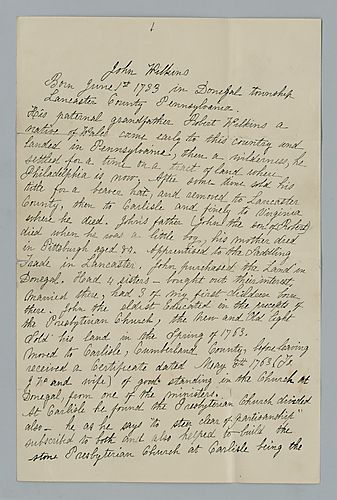 1
John Wilkins
Born June 1st 1733 in Donegal township
Lancaster County Pennsylvania.
His paternal grandfather Robert Wilkins a
native of Wales came early to this country and
landed in Pennsylvania, then a wilderness, he
settled for a time on a tract of land where
Philadelphia is now. After some time sold his
title for a beaver hat, and removed to Lancaster
County, then to Carlisle and finely to Virginia
where he died. John's father (John the son of Robert)
died when he was a little boy, his mother died
in Pittsburgh aged 82. Apprenticed to the Saddling
Trade in Lancaster. John purchased the Land in
Donegal. Had 4 sisters - bought out their interest,
(married there, had 3 of my first children born
there. John the oldest. Educated in the precepts of
the Presbyterian Church, the New and Old light
Sold his land in the Spring of 1763.
(moved to Carlisle, Cumberland County, before leaving
received a Certificate dated May 1763 (To
and wife) of good standing in the Church at
Donegal, from one of the ministers.
At Carlisle he found the Presbyterian Church divided
also - he as he says "to stear clear of partisanship"
subscribed to both and also helped to build the
stone Presbyterian Church at Carlisle being the